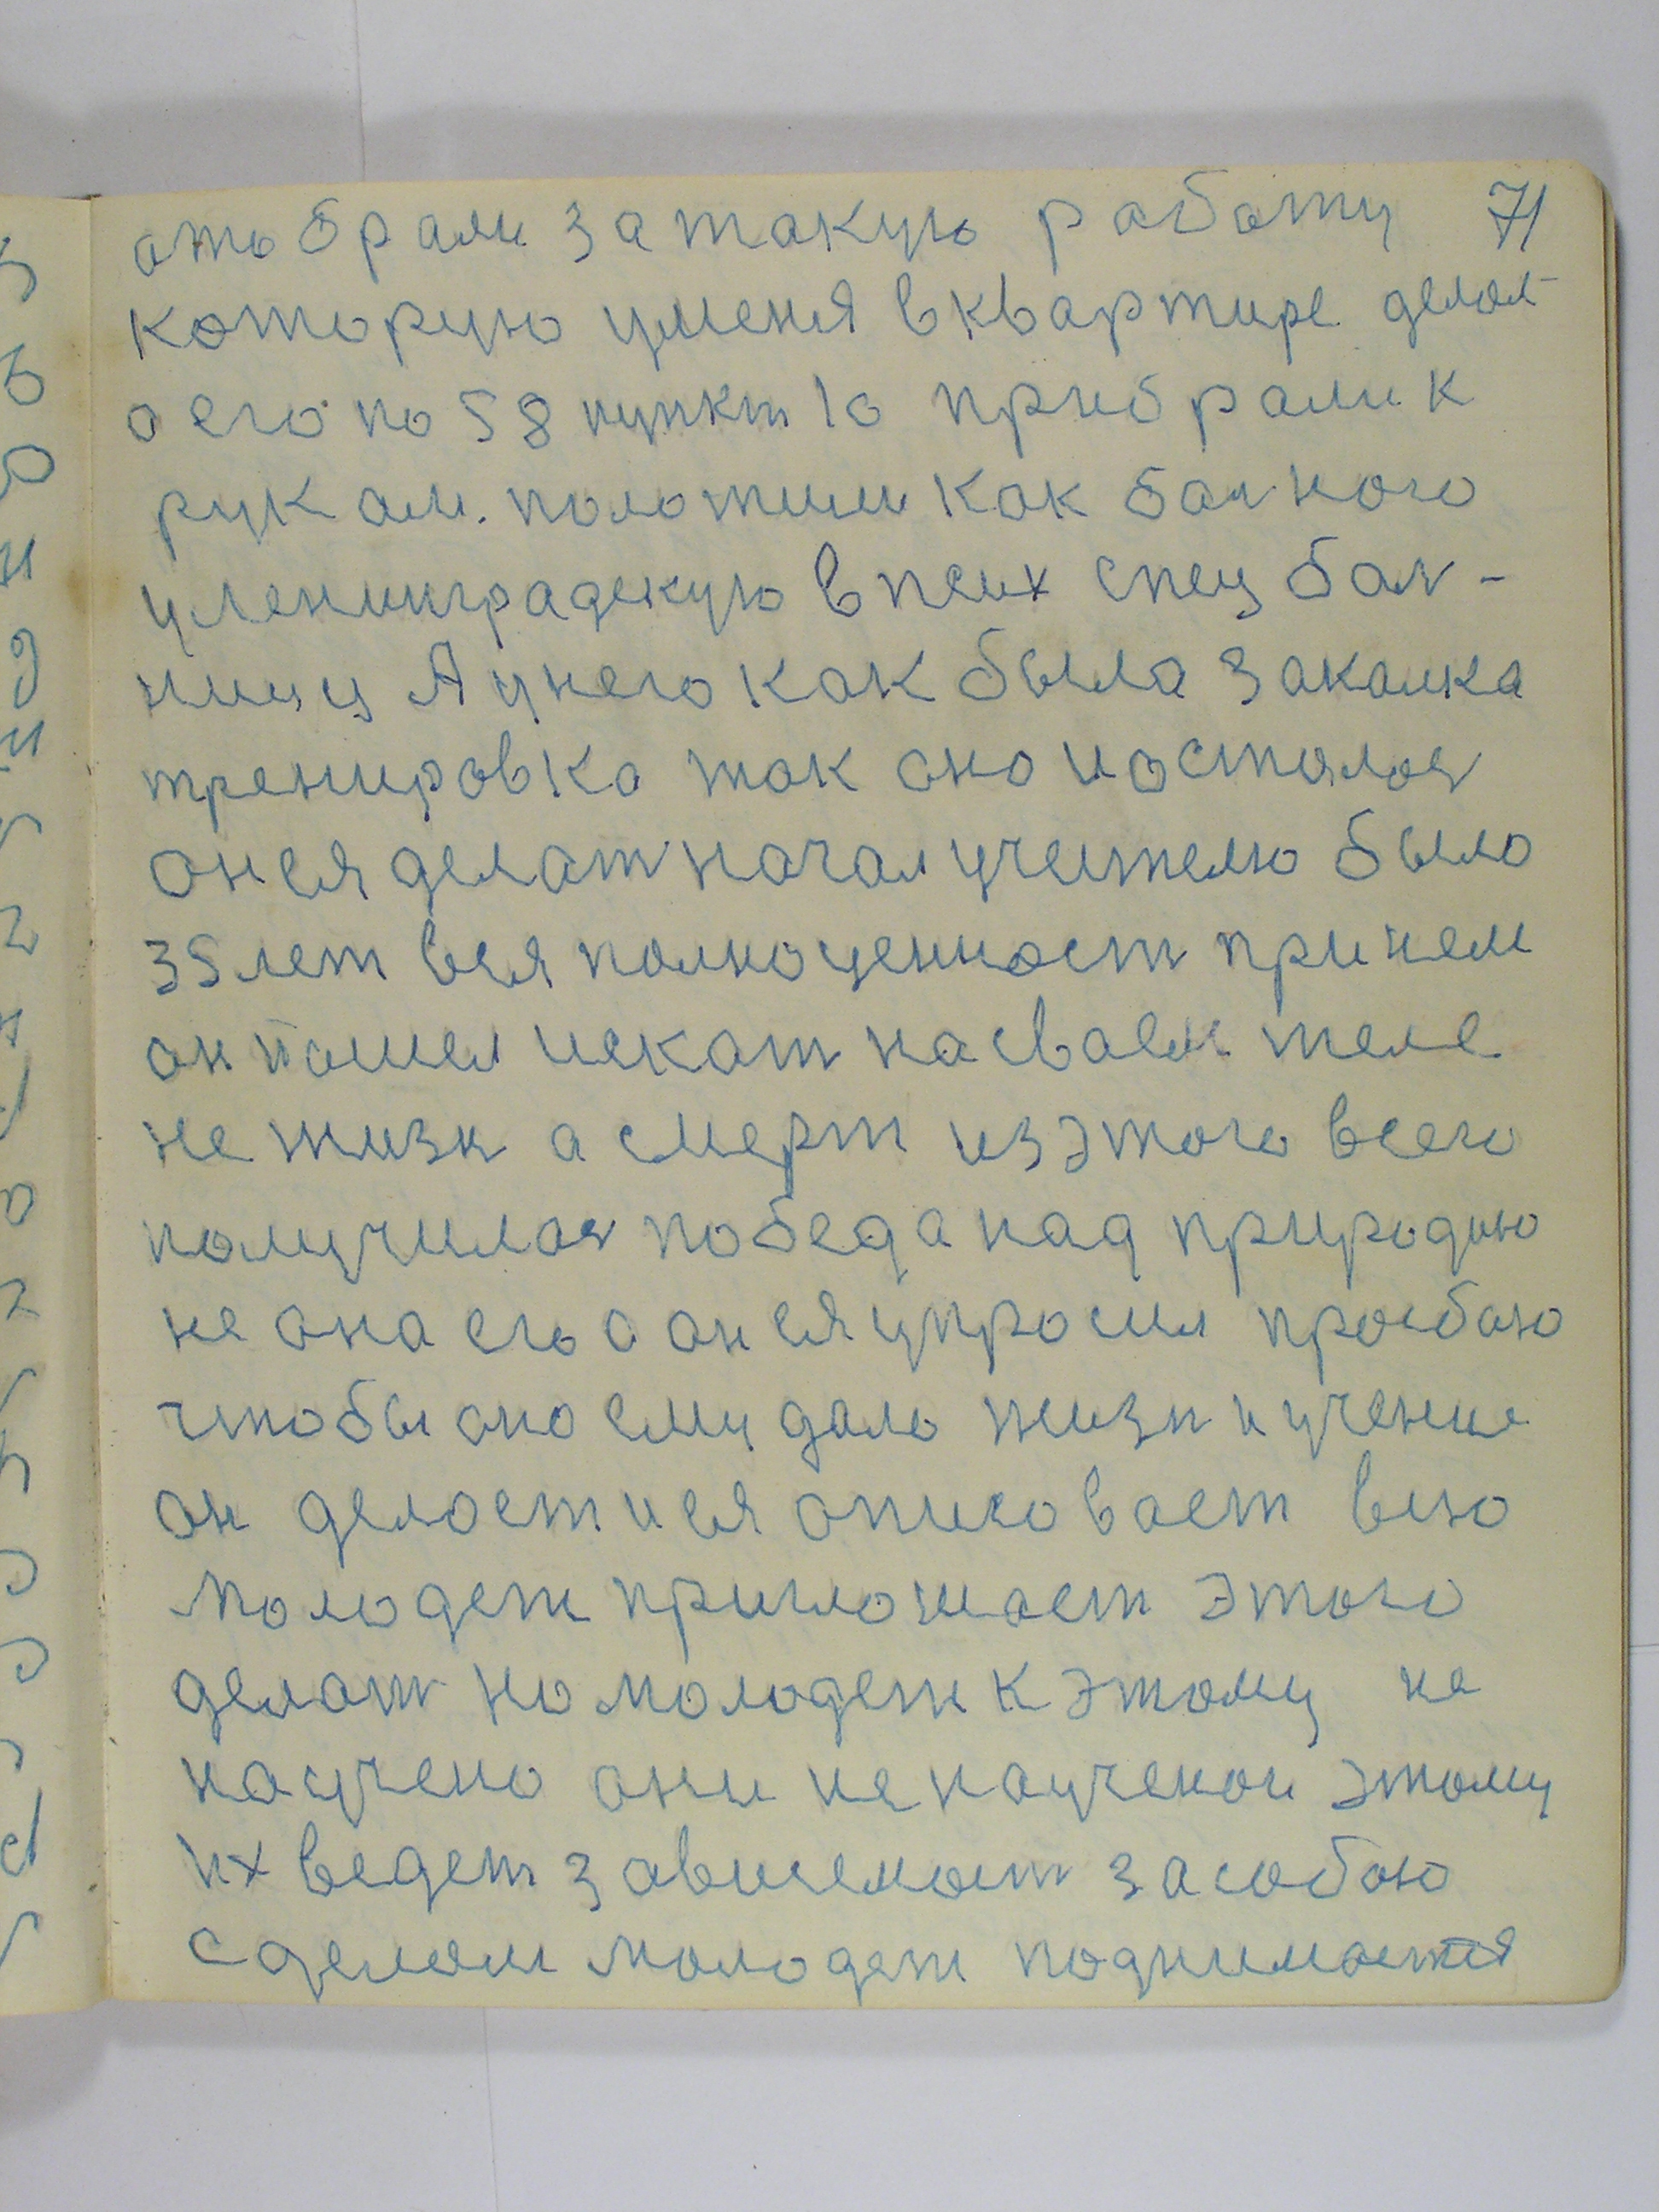 отобрали за такую работу 71
которую уменя вквартире делал
а его по 58 пункт 10 прибрали к
рукам. положили как балного
уленинградскую впсих спец бал-
ницу А унего как была закалка
тренировка так оно иосталос
онея делат начал учителю было
35 лет вся полноценност причем
он пошел искат насваем теле
не жизн а смерт изэтого всего
получилос победа над природою
не она его а он ея упросил просбою
чтобы оно ему дало жизн иучение
он делает иея описовает всю
молодеж приглошает этого
делат но молодеж кэтому не
научено они ненаученои этому
их ведет зависемост засобою
сделам молодеж поднимается